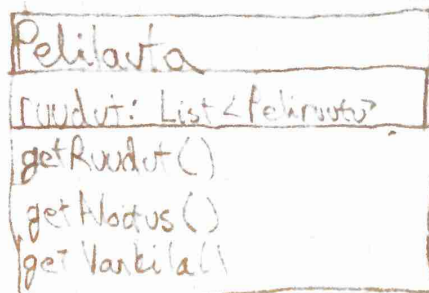 Pelilauta
ruudut: List<Peliruutu>
getRuudut()
getAloitus()
getVankila()